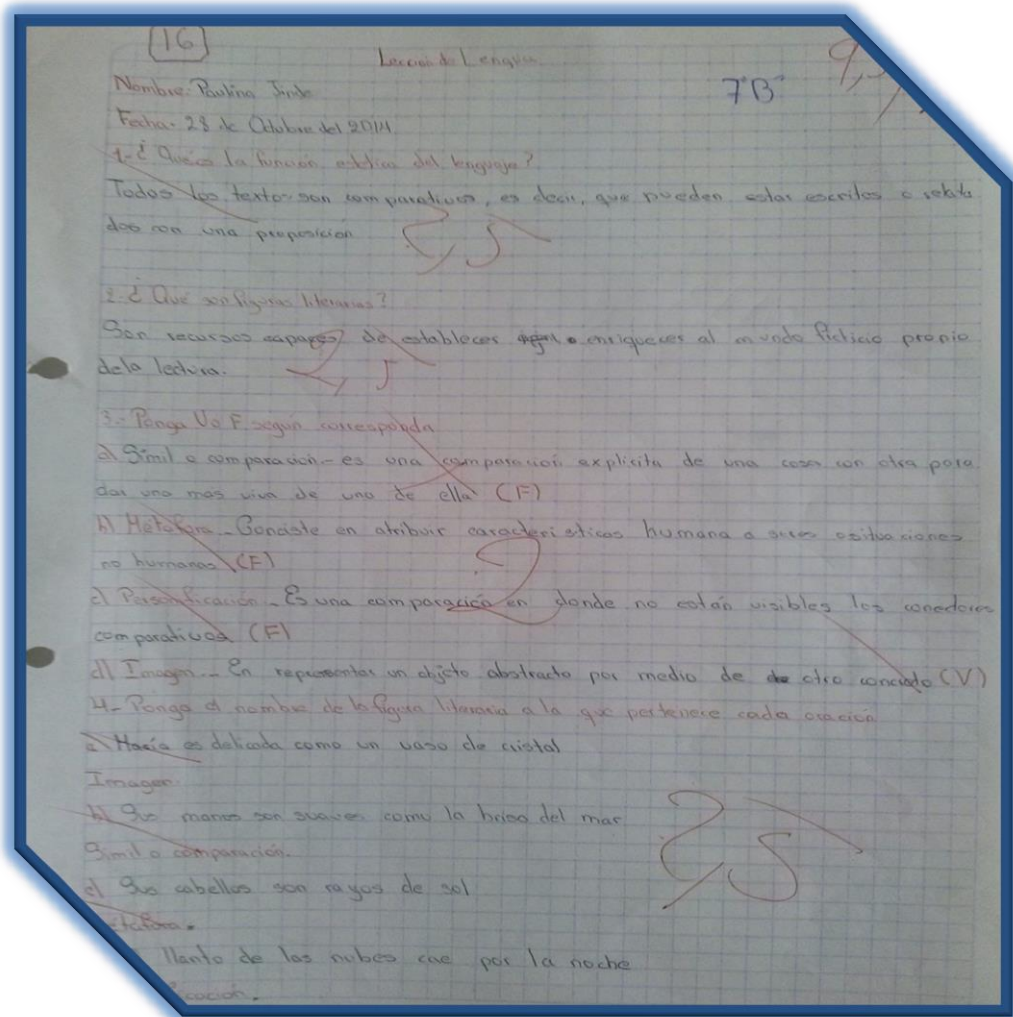 16
Lección de Lengua
9,5
Nombre: Paulina Jinde
7"B"
Fecha.- 28 de Octubre del 2014
1.-¿ Qué es la función estética del lenguaje?
Todos los textos son comparativos, es decir, que pueden estar escritos o relata
dos con una proposición
2,5
2.-¿ Qué son figuras literarias?
Son recursos capaces de establecer o enriquecer al mundo ficticio propio
dela lectura.
2,5
3.- Ponga V o F según corresponda
a) Simil o comparación.- es una comparación explicita de una cosa con otra para
dar una mas viva de una de ella (F)
b) Metáfora.- Consiste en atribuir caracteristicas humana a seres o situaciones
no humanas (F)
2
c) Personificación.- Es una comparación en donde no están visibles los conectores
comparativos (F)
d) Imagen.- En representar un objeto abstracto por medio de otro concreto (V)
4.- Ponga el nombre de la figura literaria a la que pertenece cada oración
a) María es delicada como un vaso de cristal
Imagen.
b) Sus manos son suaves como la brisa del mar
Simil o comparación.
2,5
c) Sus cabellos son rayos de sol
etáfora.
llanto de las nubes cae por la noche
icación.